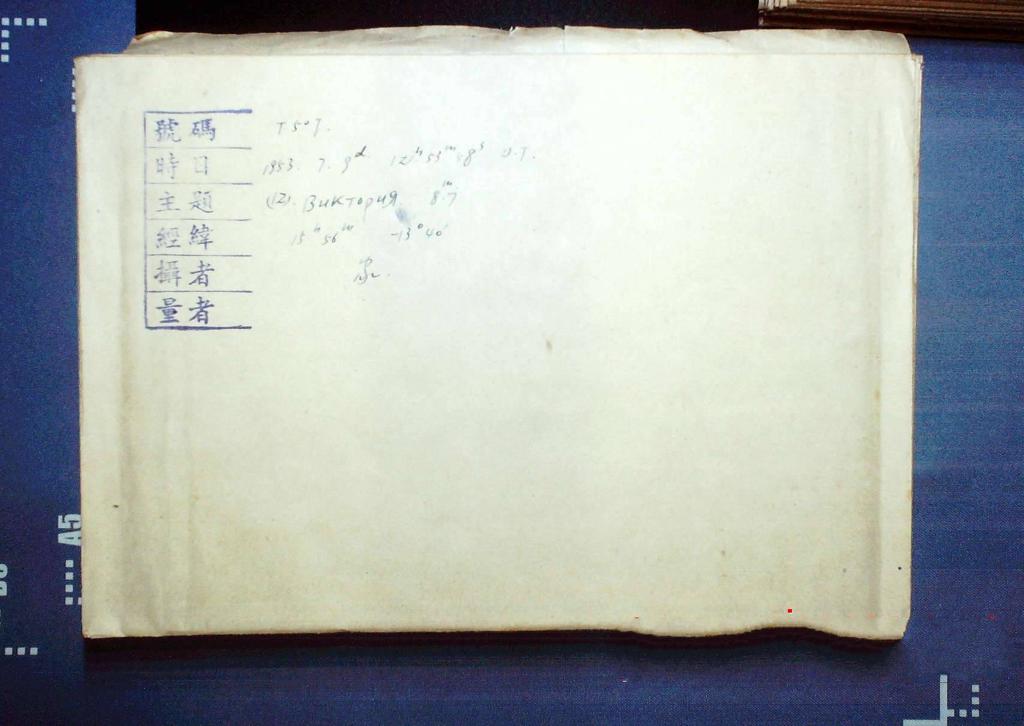 號碼 T507.
時日 1953. 7. 9ᵈ 12ʰ53ᵐ58ˢ U.T.
主題 (12). Виктория 8ᵐ.7
經緯 15ʰ56ᵐ -13°40′
攝者
量者
A5